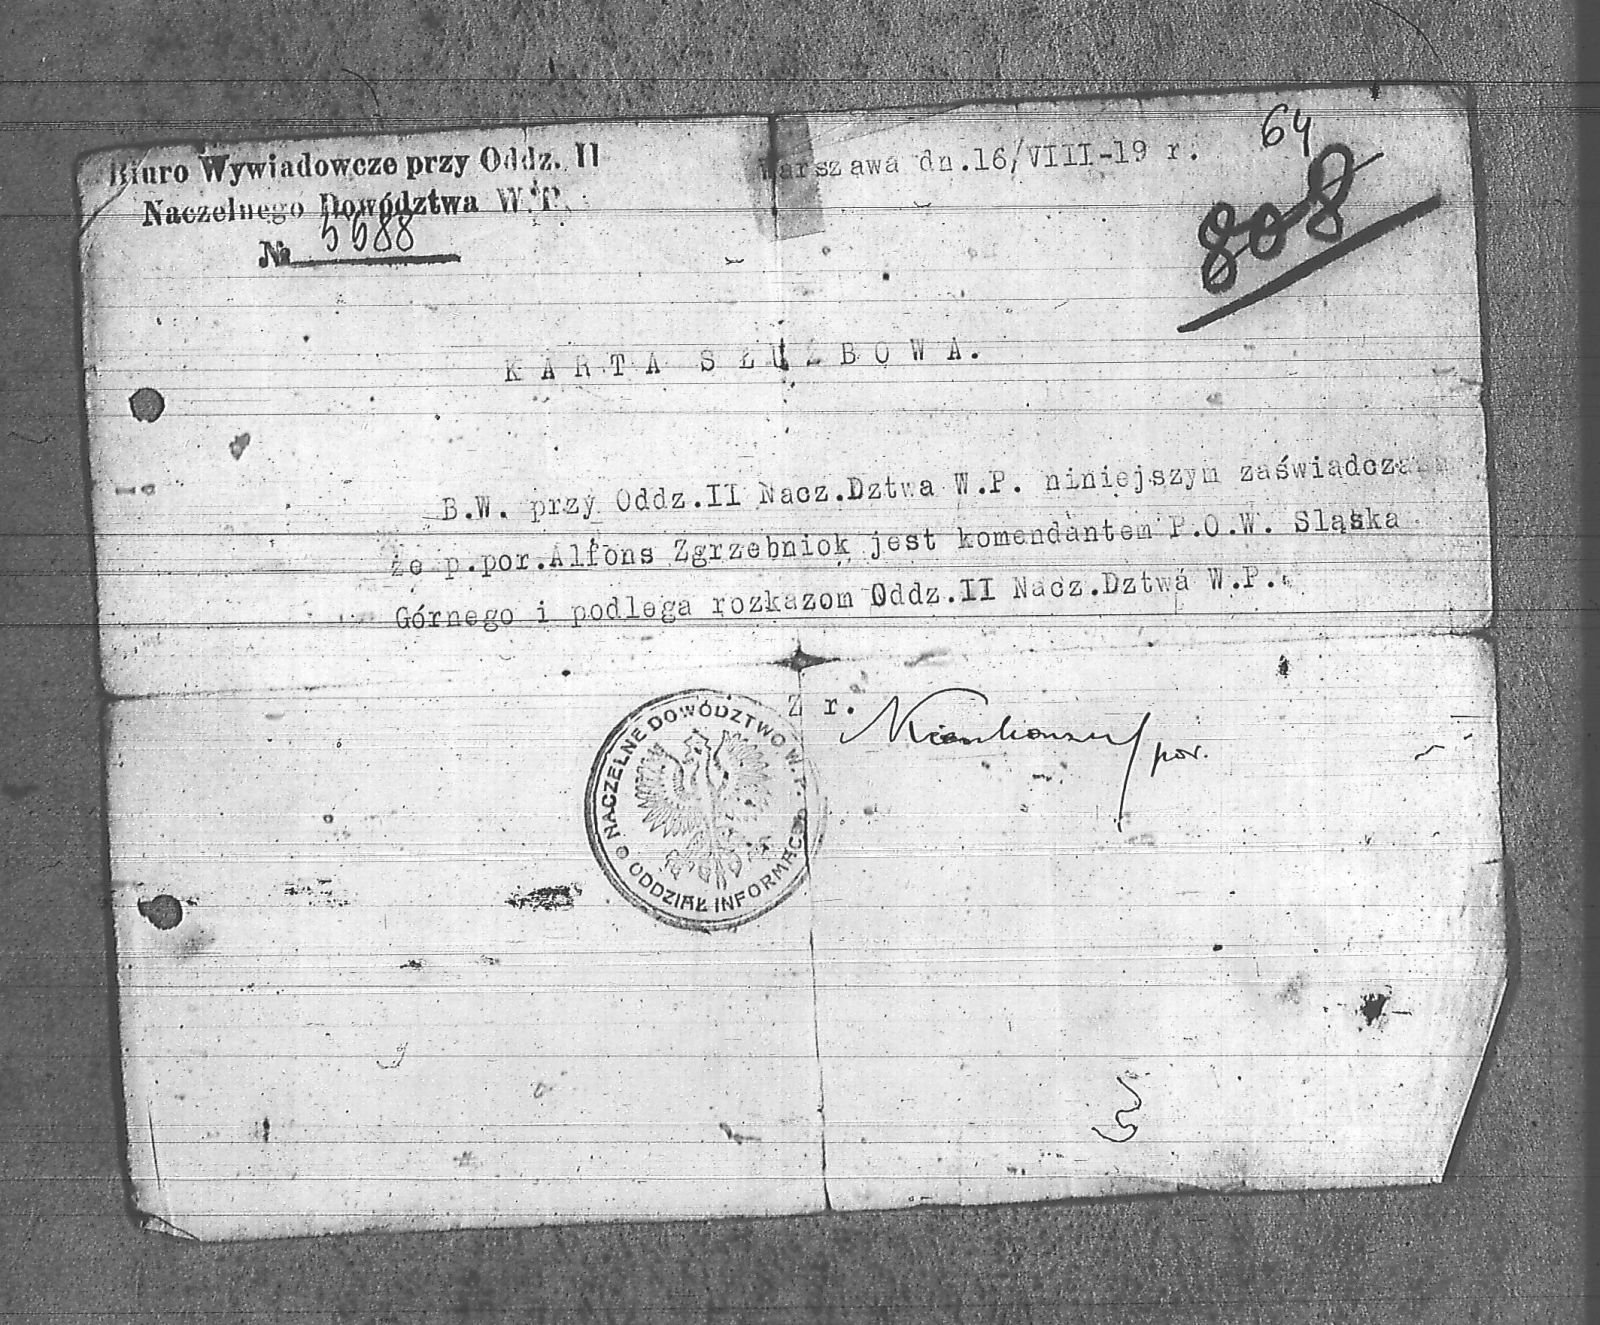 Biuro Wywiadowcze przy Oddz. II
Naczelnego Dowództwa W.P.
№ 5688
Warszawa dn.16/VIII-19 r.
64
808
KARTA SŁUŻBOWA.
B.W. przy Oddz.II Nacz.Dztwa W.P. niniejszym zaświadcza
że p.por.Alfons Zgrzebniok jest komendantem P.O.W. Sląska
Górnego i podlega rozkazom Oddz.II Nacz.Dztwa W.P.
Z r.
por.
NACZELNE DOWÓDZTWO W.P.
ODDZIAŁ INFORMAC.